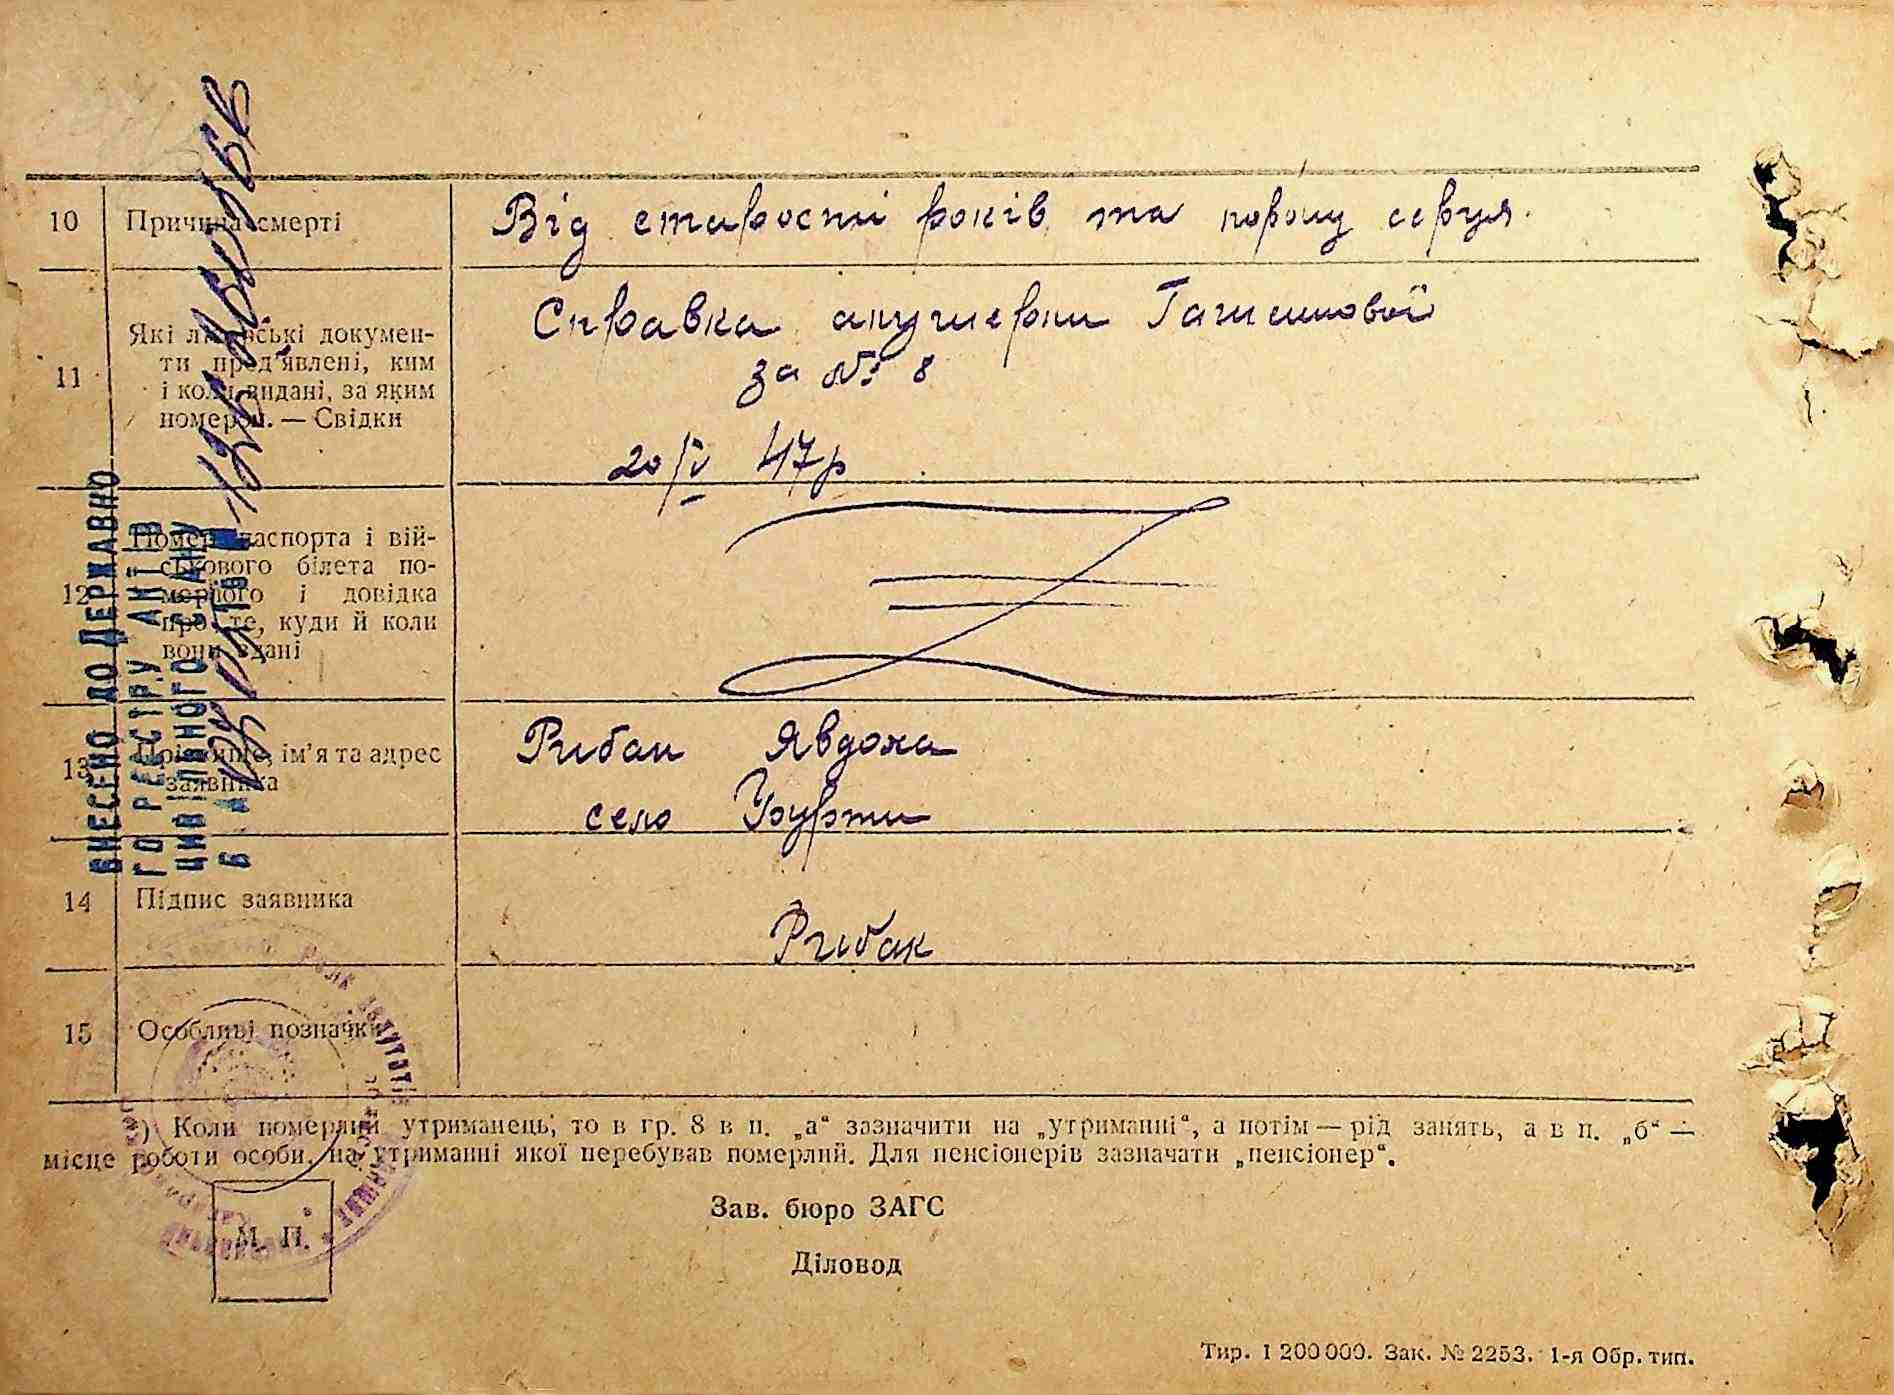 10 Причина смерті Від старости років та пороку серця.
11 Які лікарські докумен-
ти пред'явлені, ким
і коли видані, за яким
номером. — Свідки
Справка акушерки
за № 8
20/IV 47р
12 Номер паспорта і вій-
ськового білета по-
мерлого і довідка
про те, куди й коли
вони здані
13 Прізвище, ім'я та адрес
заявника
Рибак Явдоха
село
14 Підпис заявника
Рибак
15 Особливі позначки
*) Коли померлий утриманець, то в гр. 8 в п. „а“ зазначити на „утриманні“, а потім — рід занять, а в п. „б“ —
місце роботи особи, на утриманні якої перебував померлий. Для пенсіонерів зазначати „пенсіонер“.
М. П.
Зав. бюро ЗАГС
Діловод
Тир. 1 200 000. Зак. № 2253. 1-я Обр. тип.
ВНЕСЕНО ДО ДЕРЖАВНО
ГО РЕЄСТРУ АКТІВ
ЦИВІЛЬНОГО СТАНУ